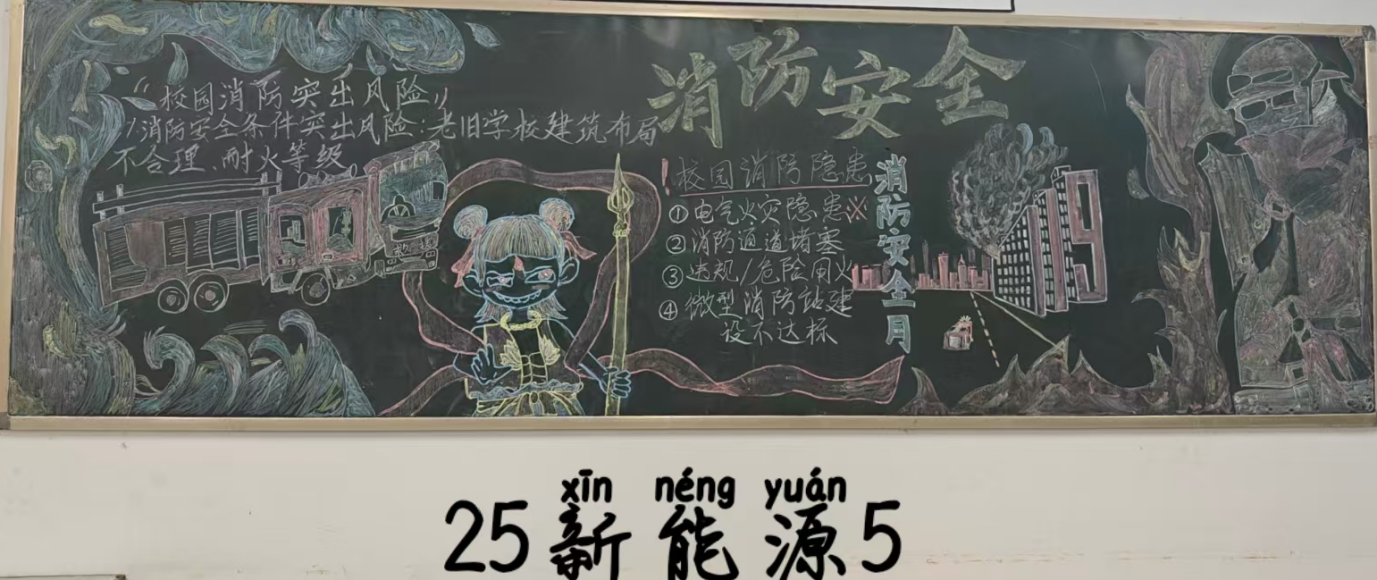 消防安全
《校园消防突出风险》
1消防安全条件突出风险:老旧学校建筑布局
不合理、耐火等级
!校园消防隐患
①电气火灾隐患※
②消防通道堵塞
③违规/危险用火
④微型消防站建
设不达标
消防安全月
119
xīn néng yuán
25新能源5